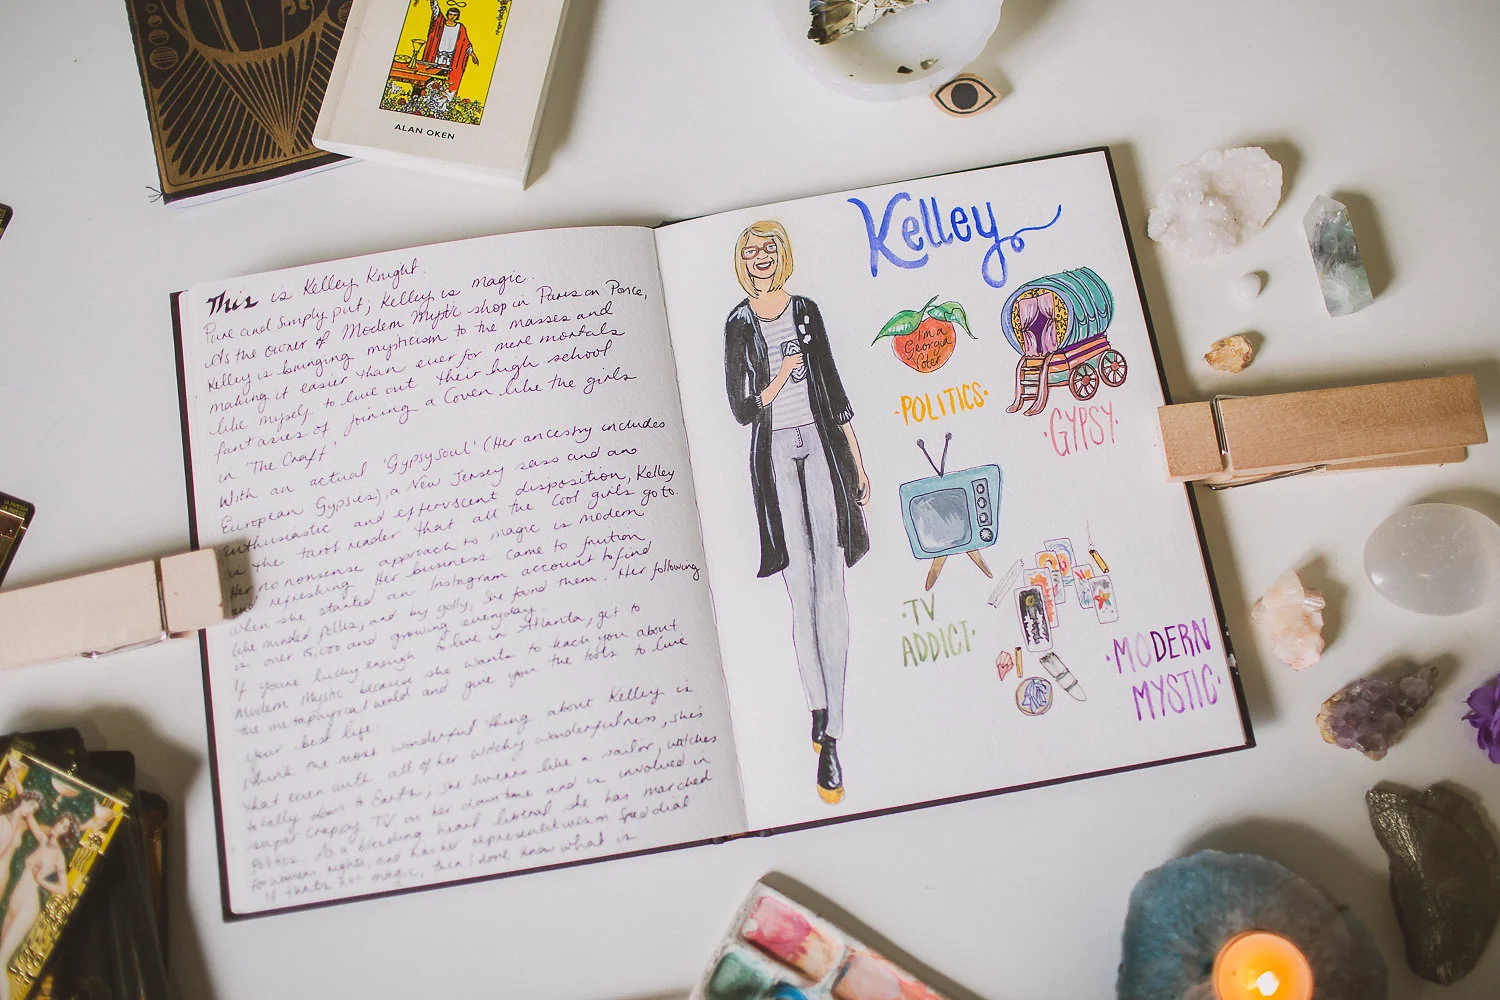 ALAN OKEN
This is Kelley Knight.
Pure and simply put, Kelley is magic.
As the owner of Modern Mystic shop in Ponce,
Kelley is bringing mysticism to the masses and
making it easier than ever for mere mortals
like myself to live out their high school
fantasies of joining a Coven like the girls
in 'The Craft'
With an actual 'Gypsy Soul' (Her ancestry includes
European Gypsies), a New Jersey sass and an
enthusiastic and effervescent disposition, Kelley
is the tarot reader that all the cool girls go to.
Her no nonsense approach to magic is modern
and refreshing. Her business came to fruition
when she started an Instagram account to find
like minded folks, and by golly, she found them. Her following
is over 15,000 and growing everyday.
If you're lucky enough to live in Atlanta, get to
Modern Mystic because she wants to teach you about
the metaphysical world and give you the tools to live
your best life.
I think the most wonderful thing about Kelley is
that even with all of her witchy wonderfulness, she's
totally down to Earth, she swears like a sailor, watches
super crappy TV on her downtime and is involved in
politics. As a bleeding heart liberal she has marched
for womens rights, and has her representatives on speed dial
If that's not magic, then I dont know what is.
Kelley
I'm a
Georgia
Voter
·POLITICS·
·GYPSY·
·TV
ADDICT·
·MODERN
MYSTIC·